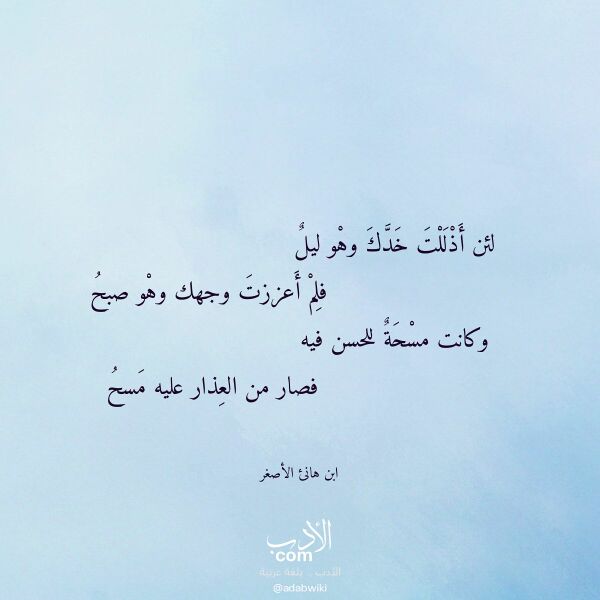 لئن أَذْلَلْتَ خَدَّكَ وهْو ليلٌ
فلِمْ أَعززتَ وجهك وهْو صبحُ
وكانت مسْحَةٌ للحسن فيه
فصار من العِذار عليه مَسحُ
ابن هانئ الأصغر
الأدب
com
الأدب .. بلغة عربية
@adabwiki